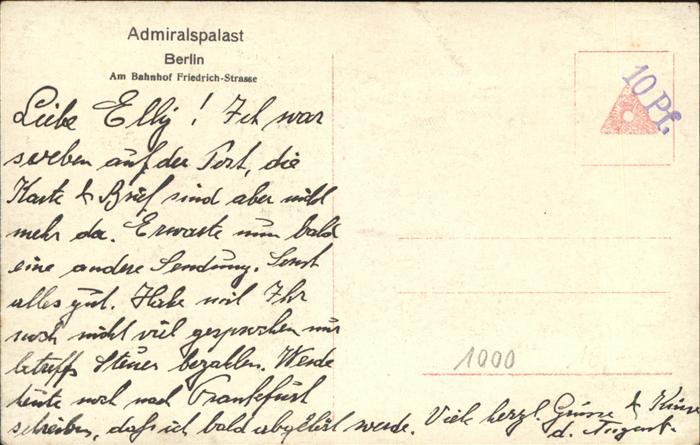 Admiralspalast
Berlin
Am Bahnhof Friedrich-Strasse
10 Pf.
Liebe Elly! Ich war
soeben auf der Post, die
Karte & Brief sind aber nicht
mehr da. Erwarte nun bald
eine andere Sendung. Sonst
alles gut. Habe mit Ihr
noch nicht viel gesprochen nur
betreffs Steuer bezahlen. Werde
heute noch nach Frankfurt
schreiben, dass ich bald abgelöst werde. Viele herzl. Grüsse & Küsse
d. August.
1000